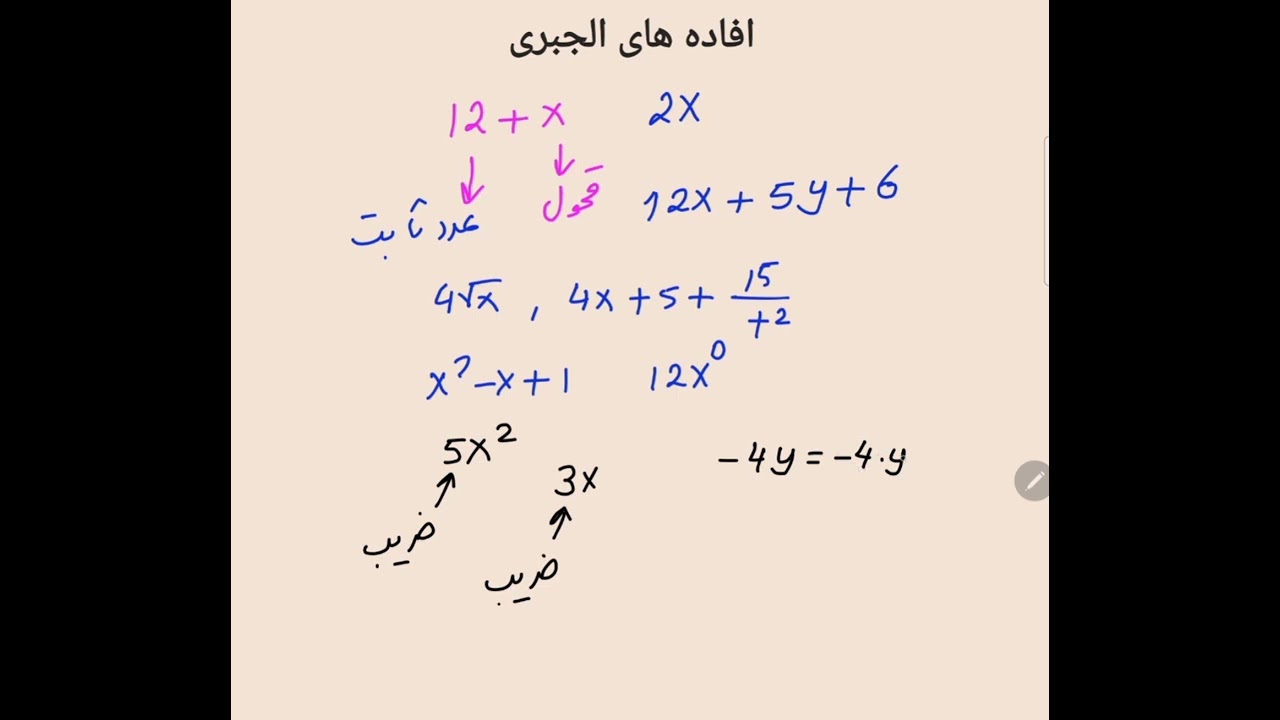 افاده های الجبری
12 + x 2x
عدد ثابت متحول 12x + 5y + 6
4√x , 4x + 5 + 15/t²
x² - x + 1 12x⁰
5x² -4y = -4·y
3x
ضریب
ضریب